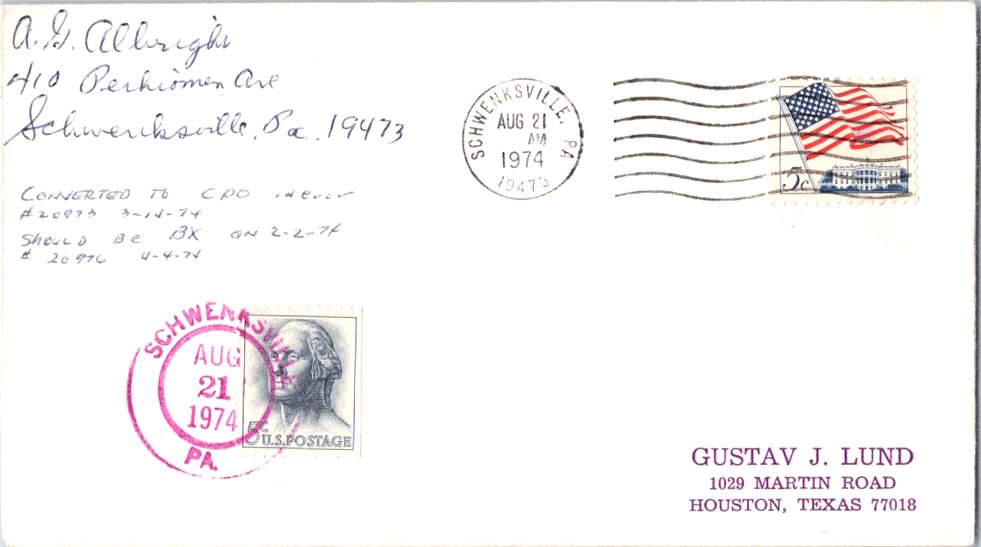 A. G. Albright
410 Perkiomen Ave
Schwenksville, Pa. 19473
CONVERTED TO CPO
#20973 3-14-74
SHOULD BE BX ON 2-2-74
# 20976 4-4-74
SCHWENKSVILLE, PA
AUG 21
AM
1974
19473
5c
SCHWENKSVILLE
AUG
21
1974
PA.
5c
U.S. POSTAGE
GUSTAV J. LUND
1029 MARTIN ROAD
HOUSTON, TEXAS 77018